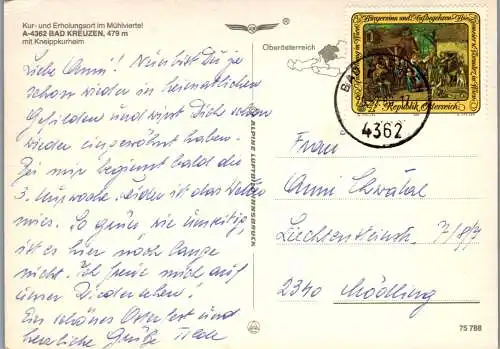 Kur- und Erholungsort im Mühlviertel
A-4362 BAD KREUZEN, 479 m
mit Kneippkurheim
Liebe Anni! Nun bist Du ja
schon wieder in heimatlichen
Gefilden und wirst Dich schon
wieder eingewöhnt haben.
Bei mir beginnt bald die
3. Kurwoche. Leider ist das Wetter
mies. So grün, wie umseitig,
ist es hier noch lange
nicht. Ich freue mich auf
unser Wiedersehen!
Ein schönes Osterfest und
herzliche Grüße
ALPINE LUFTBILD INNSBRUCK
Oberösterreich
BAD
4362
Republik Österreich
Frau
Anni
Liechtensteinstr. 7/9/7
2340 Mödling
75 788